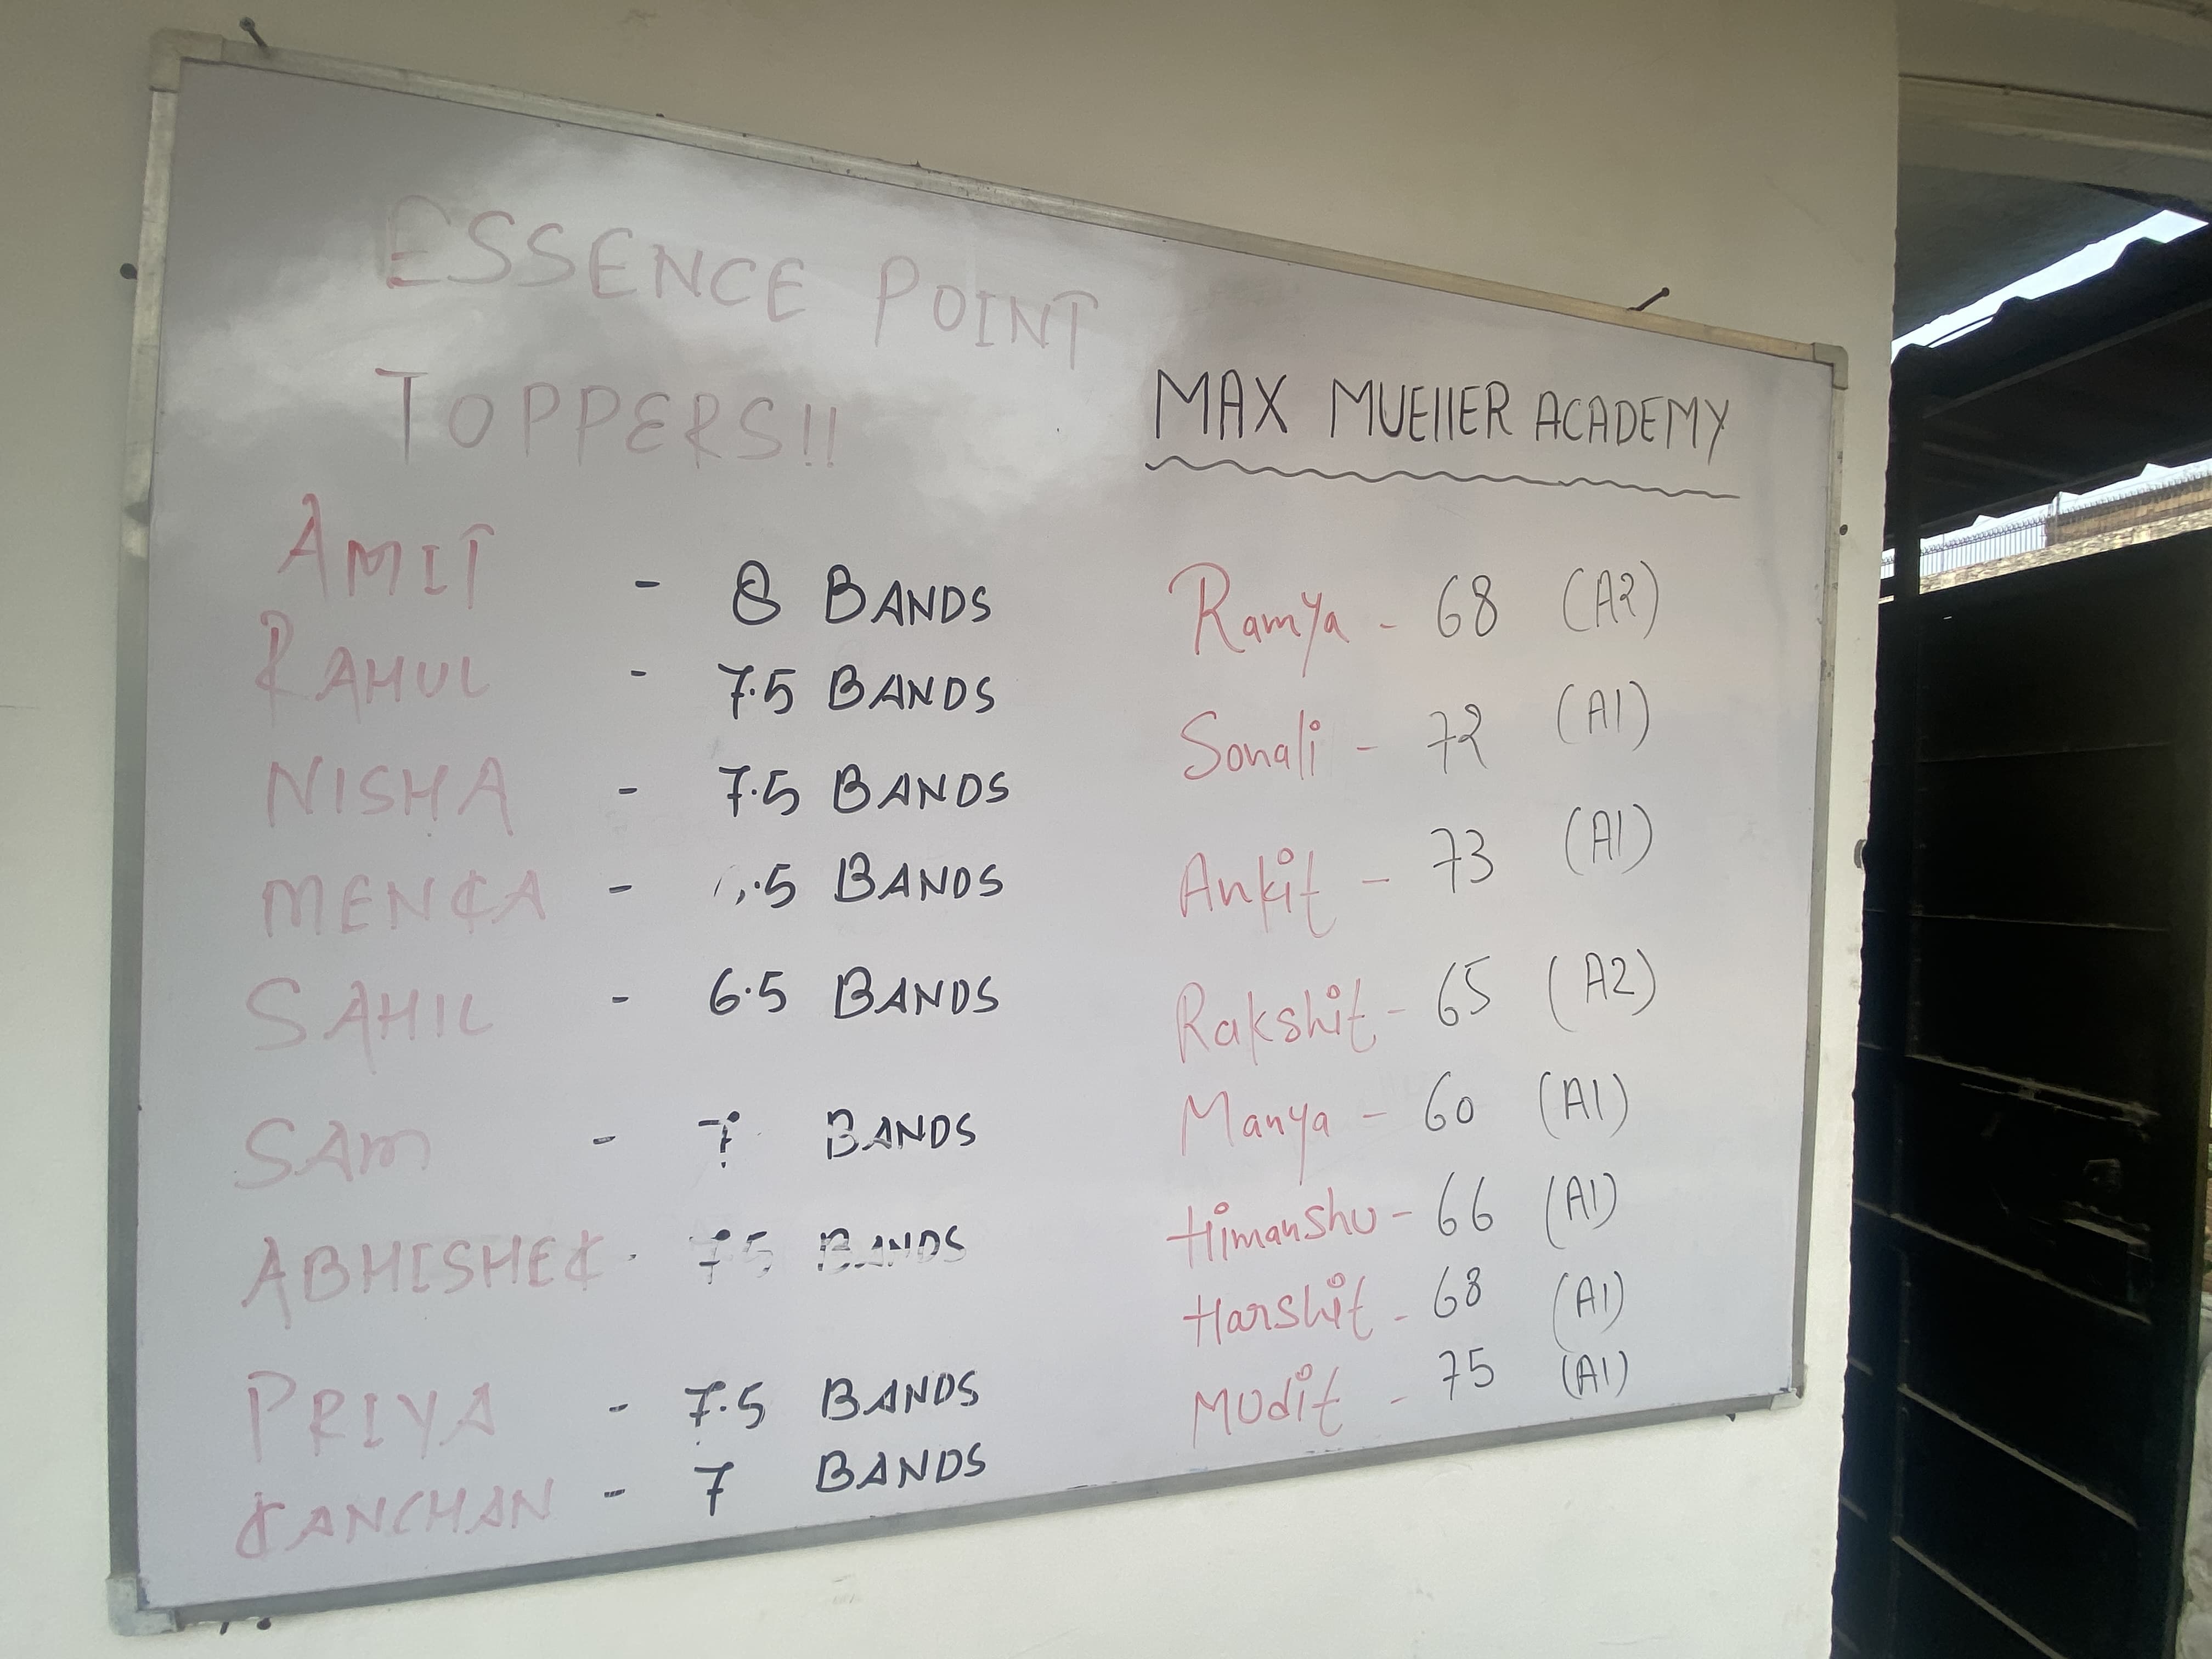 ESSENCE POINT
TOPPERS!!
AMIT - 8 BANDS
RAHUL - 7.5 BANDS
NISHA - 7.5 BANDS
MENKA - .5 BANDS
SAHIL - 6.5 BANDS
SAM - 7 BANDS
ABHISHEK - 7.5 BANDS
PRIYA - 7.5 BANDS
KANCHAN - 7 BANDS
MAX MUEllER ACADEMY
Ramya - 68 (A2)
Sonali - 72 (A1)
Ankit - 73 (A1)
Rakshit - 65 (A2)
Manya - 60 (A1)
Himanshu - 66 (A1)
Harshit - 68 (A1)
Mudit - 75 (A1)